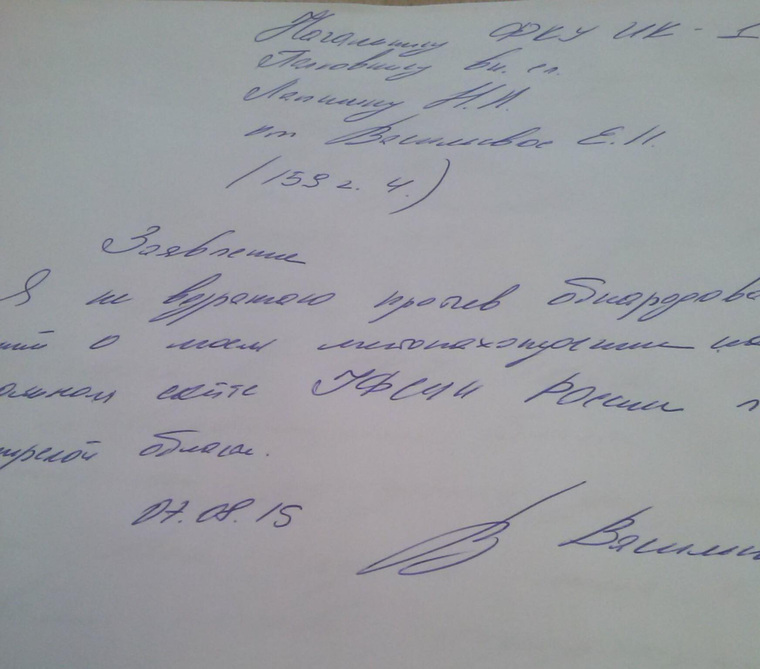 Начальнику ФКУ ИК - 1
Полковнику вн. сл.
Лапкину Н.И.
от Васильевой Е.Н.
(159 г. 4.)
Заявление
Я не возражаю против обнародова
ний о моем местонахождении на
альном сайте УФСИН России п
мирской области.
07.08.15
Василь